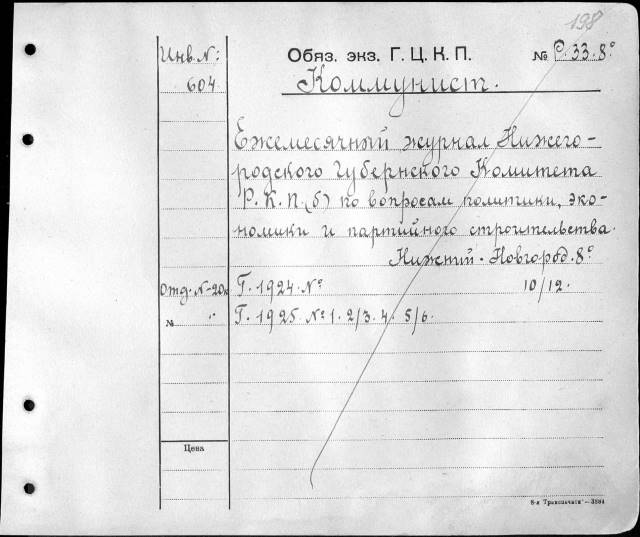 198
Инв. №: Обяз. экз. Г. Ц. К. П. № 33.8°
604 Коммунист.
Ежемесячный журнал Нижего-
родского Губернского Комитета
Р. К. П. (б) по вопросам политики, эко-
номики и партийного строительства.
Нижний-Новгород. 8°
Отд. №-20к Г. 1924. № 10/12.
№ " Г. 1925. № 1. 2/3. 4. 5/6.
Цена
8-я Транспечати—3384